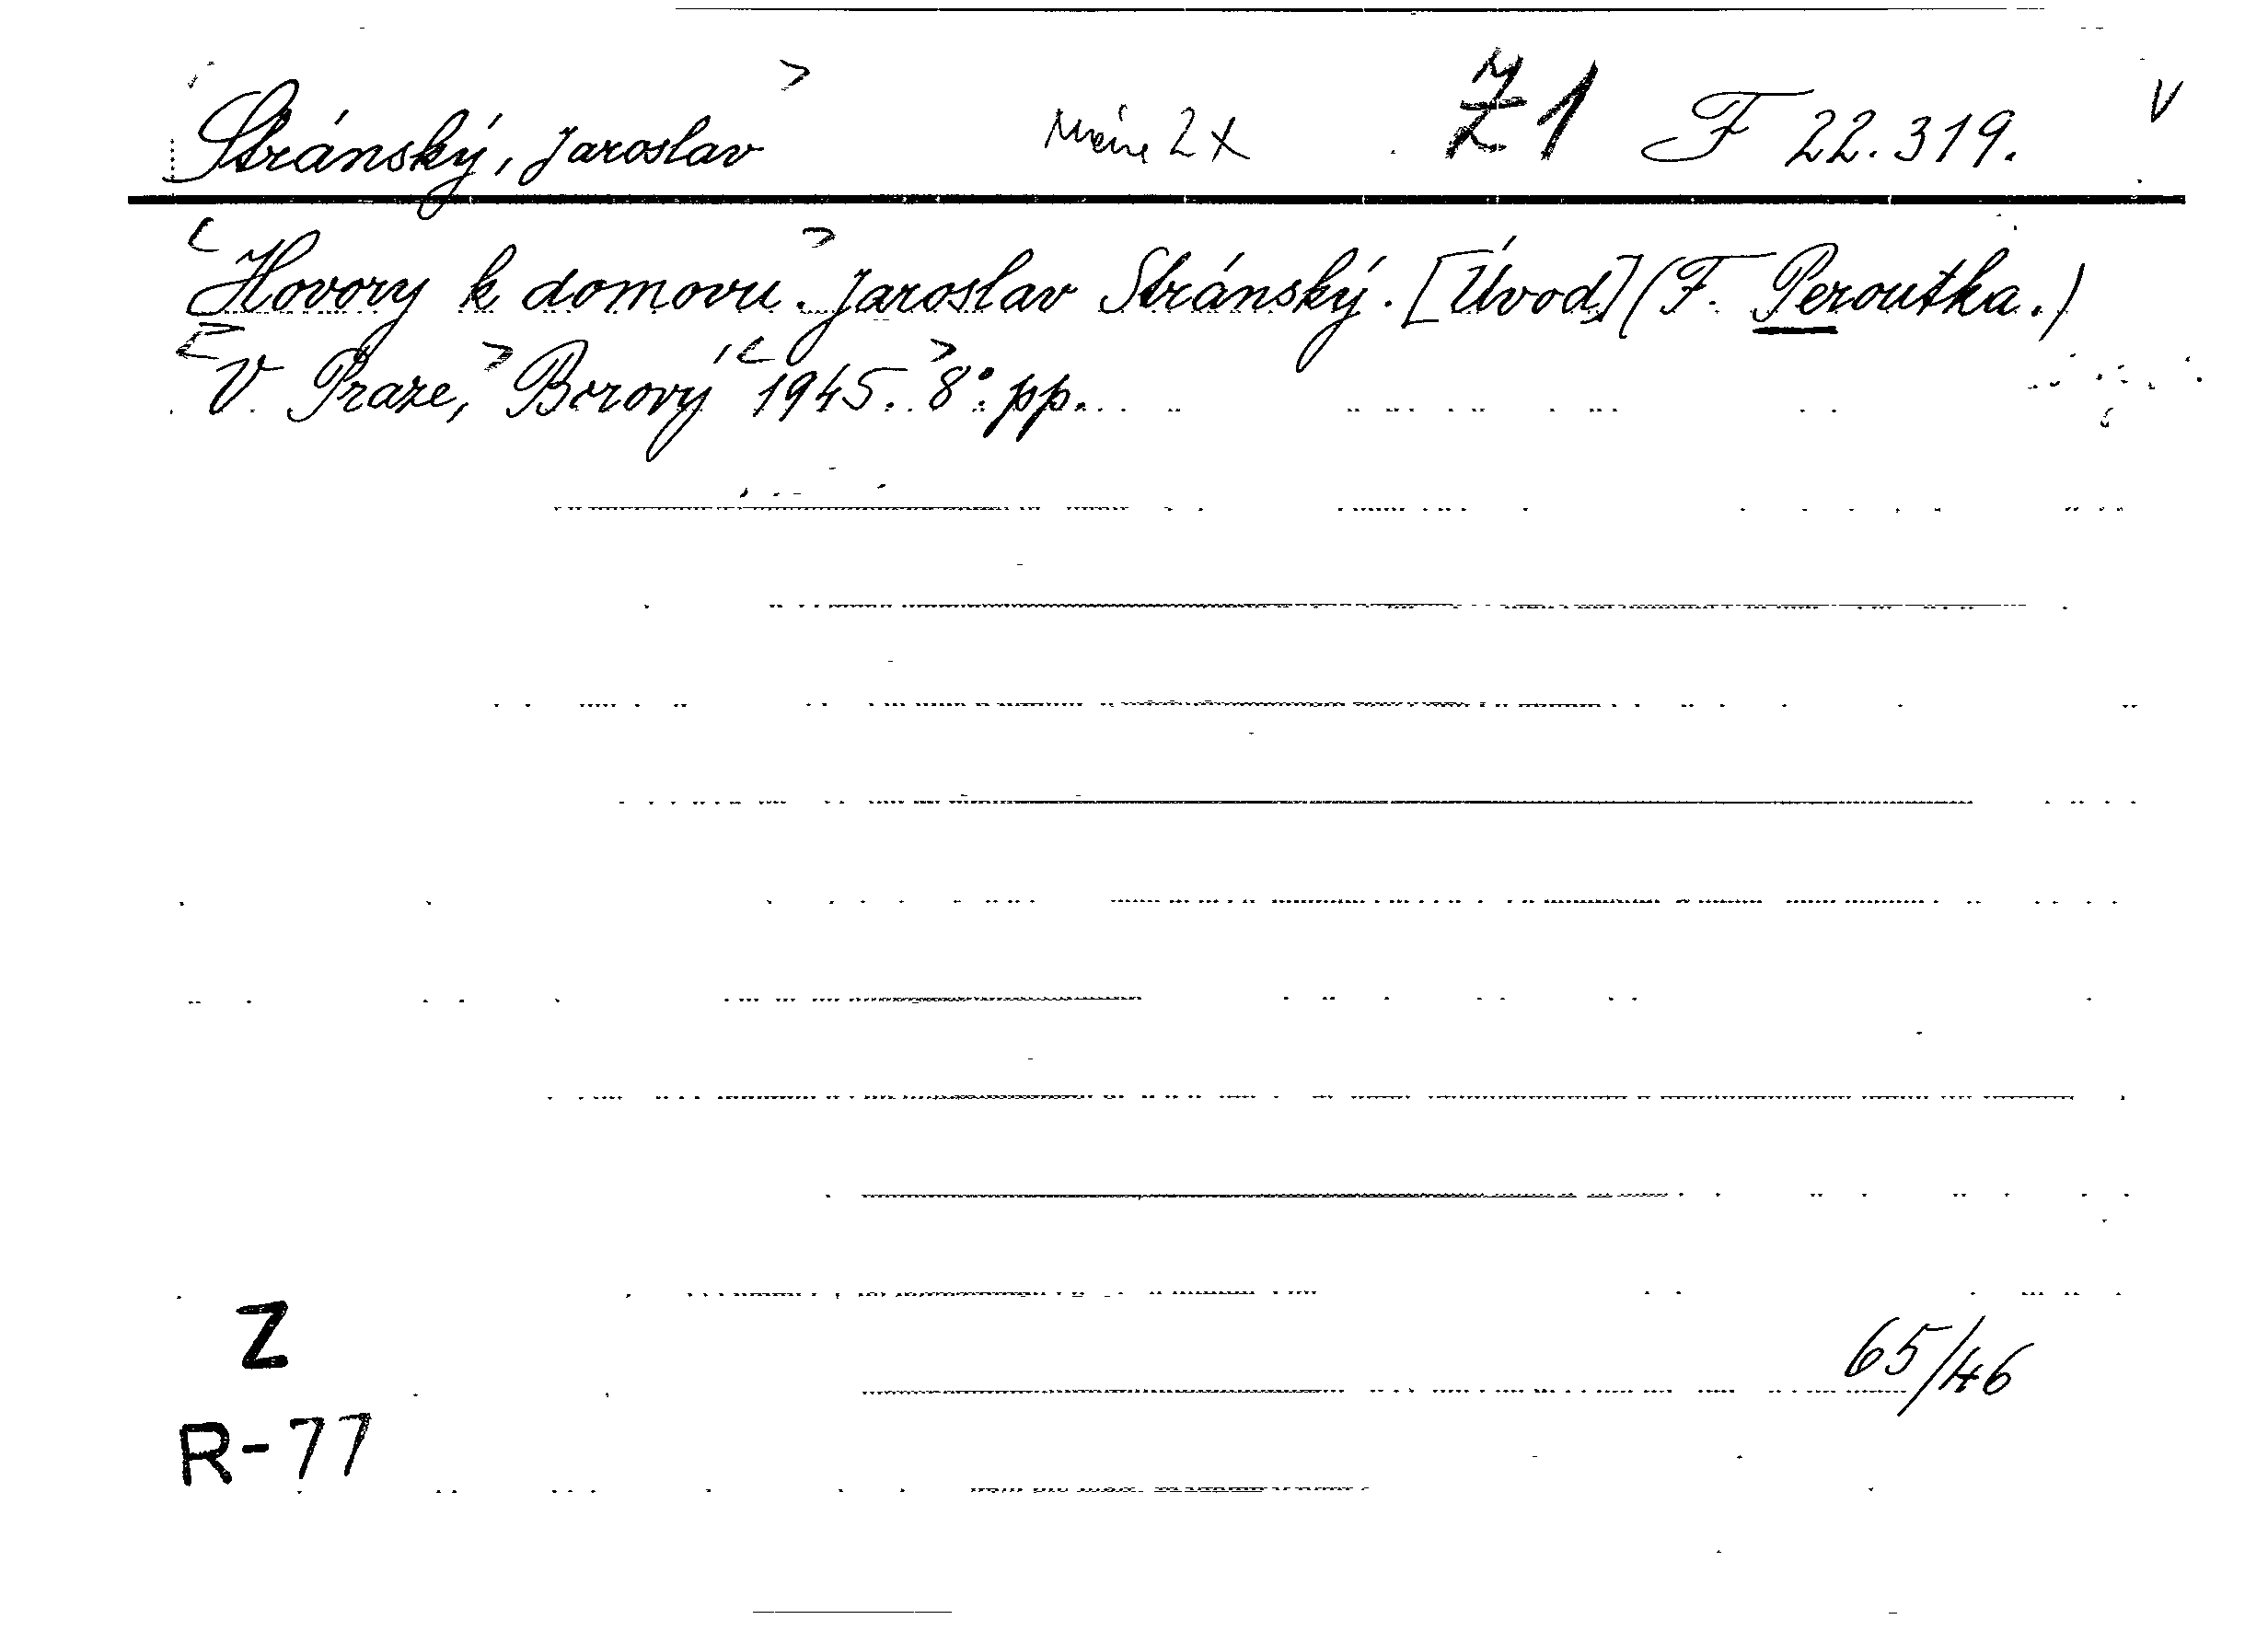 Stránský, Jaroslav máme 2x Ž1 F 22.319. V
Hovory k domovu. Jaroslav Stránský. [Úvod] (F. Peroutka.)
V Praze, Borový 1945. 8°. pp.
Z
65/46
R-77